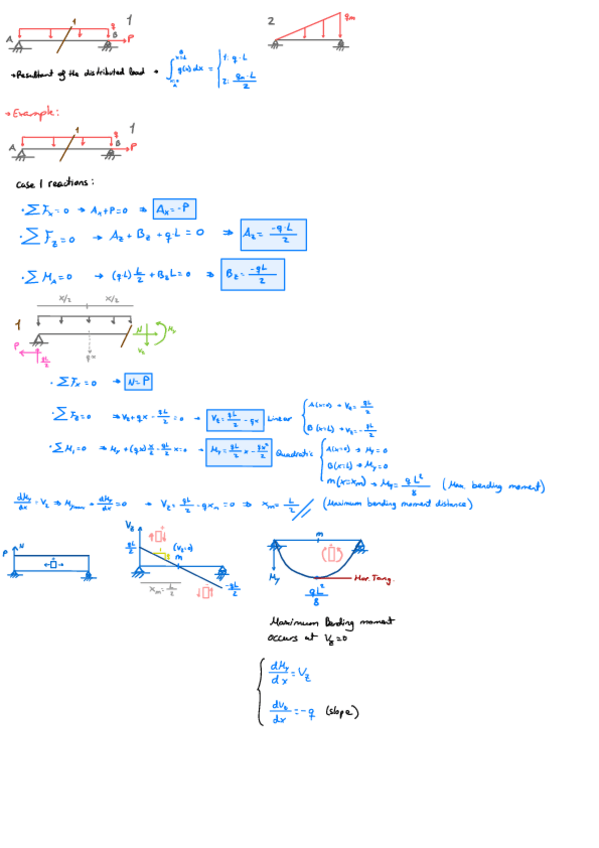 1 1 2 qm
A B q P
→ Resultant of the distributed load → ∫ q(x) dx = { 1: q·L
2: qm·L/2
→ Example:
1 1
A B q P
case 1 reactions:
· ∑Fx=0 → Ax+P=0 ⇒ Ax=-P
· ∑Fz=0 → Az+Bz+q·L=0 ⇒ Az=-q·L/2
· ∑MA=0 → (qL)L/2+BzL=0 ⇒ Bz=-qL/2
x/2 x/2
1 N My
P Vz
qL/2 qx
· ∑Fx=0 → N=P
· ∑Fz=0 ⇒ Vz+qx-qL/2=0 → Vz=qL/2-qx Linear { A(x=0) → Vz=qL/2
B(x=L) → Vz=-qL/2
· ∑My=0 ⇒ My+(qx)x/2-qL/2x=0 → My=qL/2x-qx²/2 Quadratic { A(x=0) → My=0
B(x=L) → My=0
m(x=xm) → My=qL²/8 (Max. bending moment)
dMy/dx=Vz ⇒ Mymax → dMy/dx=0 → Vz=qL/2-qxm=0 ⇒ xm=L/2 // (Maximum bending moment distance)
P N
Vz
qL/2 (Vz=0)
m
xm=L/2 -qL/2
m
My Hor. Tang.
qL²/8
Maximum Bending moment
occurs at Vz=0
{ dMy/dx=Vz
dVz/dx=-q (slope)